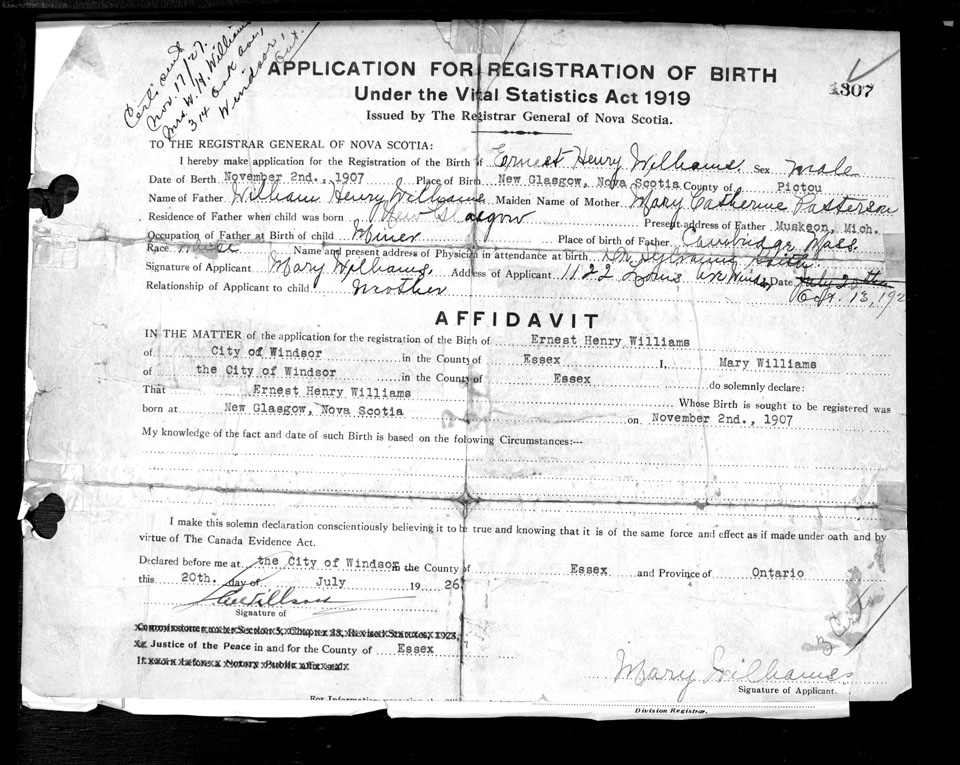 Nov. 17/27.
Mrs. W. H. Williams
314 Oak ave,
Windsor, Ont.
APPLICATION FOR REGISTRATION OF BIRTH
Under the Vital Statistics Act 1919
1307
Issued by The Registrar General of Nova Scotia.
TO THE REGISTRAR GENERAL OF NOVA SCOTIA:
I hereby make application for the Registration of the Birth of Ernest Henry Williams. Sex male
Date of Berth November 2nd., 1907 Place of Birth New Glasgow, Nova Scotia County of Pictou
Name of Father William Henry Williams Maiden Name of Mother Mary Catherine Patterson
Residence of Father when child was born New Glasgow Present address of Father Muskeon, Mich.
Occupation of Father at Birth of child Miner Place of birth of Father Cambridge Mass.
Race white Name and present address of Physician in attendance at birth Dr. Keith.
Signature of Applicant Mary Williams. Address of Applicant 1122 Windsor Date July 20th
Oct. 13, 192
Relationship of Applicant to child mother
AFFIDAVIT
IN THE MATTER of the application for the registration of the Birth of Ernest Henry Williams
of City of Windsor in the County of Essex I, Mary Williams
of the City of Windsor in the County of Essex do solemnly declare:
That Ernest Henry Williams Whose Birth is sought to be registered was
born at New Glasgow, Nova Scotia on November 2nd., 1907
My knowledge of the fact and date of such Birth is based on the folowing Circumstances:---
I make this solemn declaration conscientiously believing it to be true and knowing that it is of the same force and effect as if made under oath and by
virtue of The Canada Evidence Act.
Declared before me at the City of Windsor in the County of Essex and Province of Ontario
this 20th. day of July 1926
Signature of
Commissioner under Section 5, Chapter 38, Revised Statutes, 1923,
Justice of the Peace in and for the County of Essex
If sworn before a Notary Public affix seal
3 Certs
Mary Williams
Signature of Applicant.
For Information
Division Registrar.